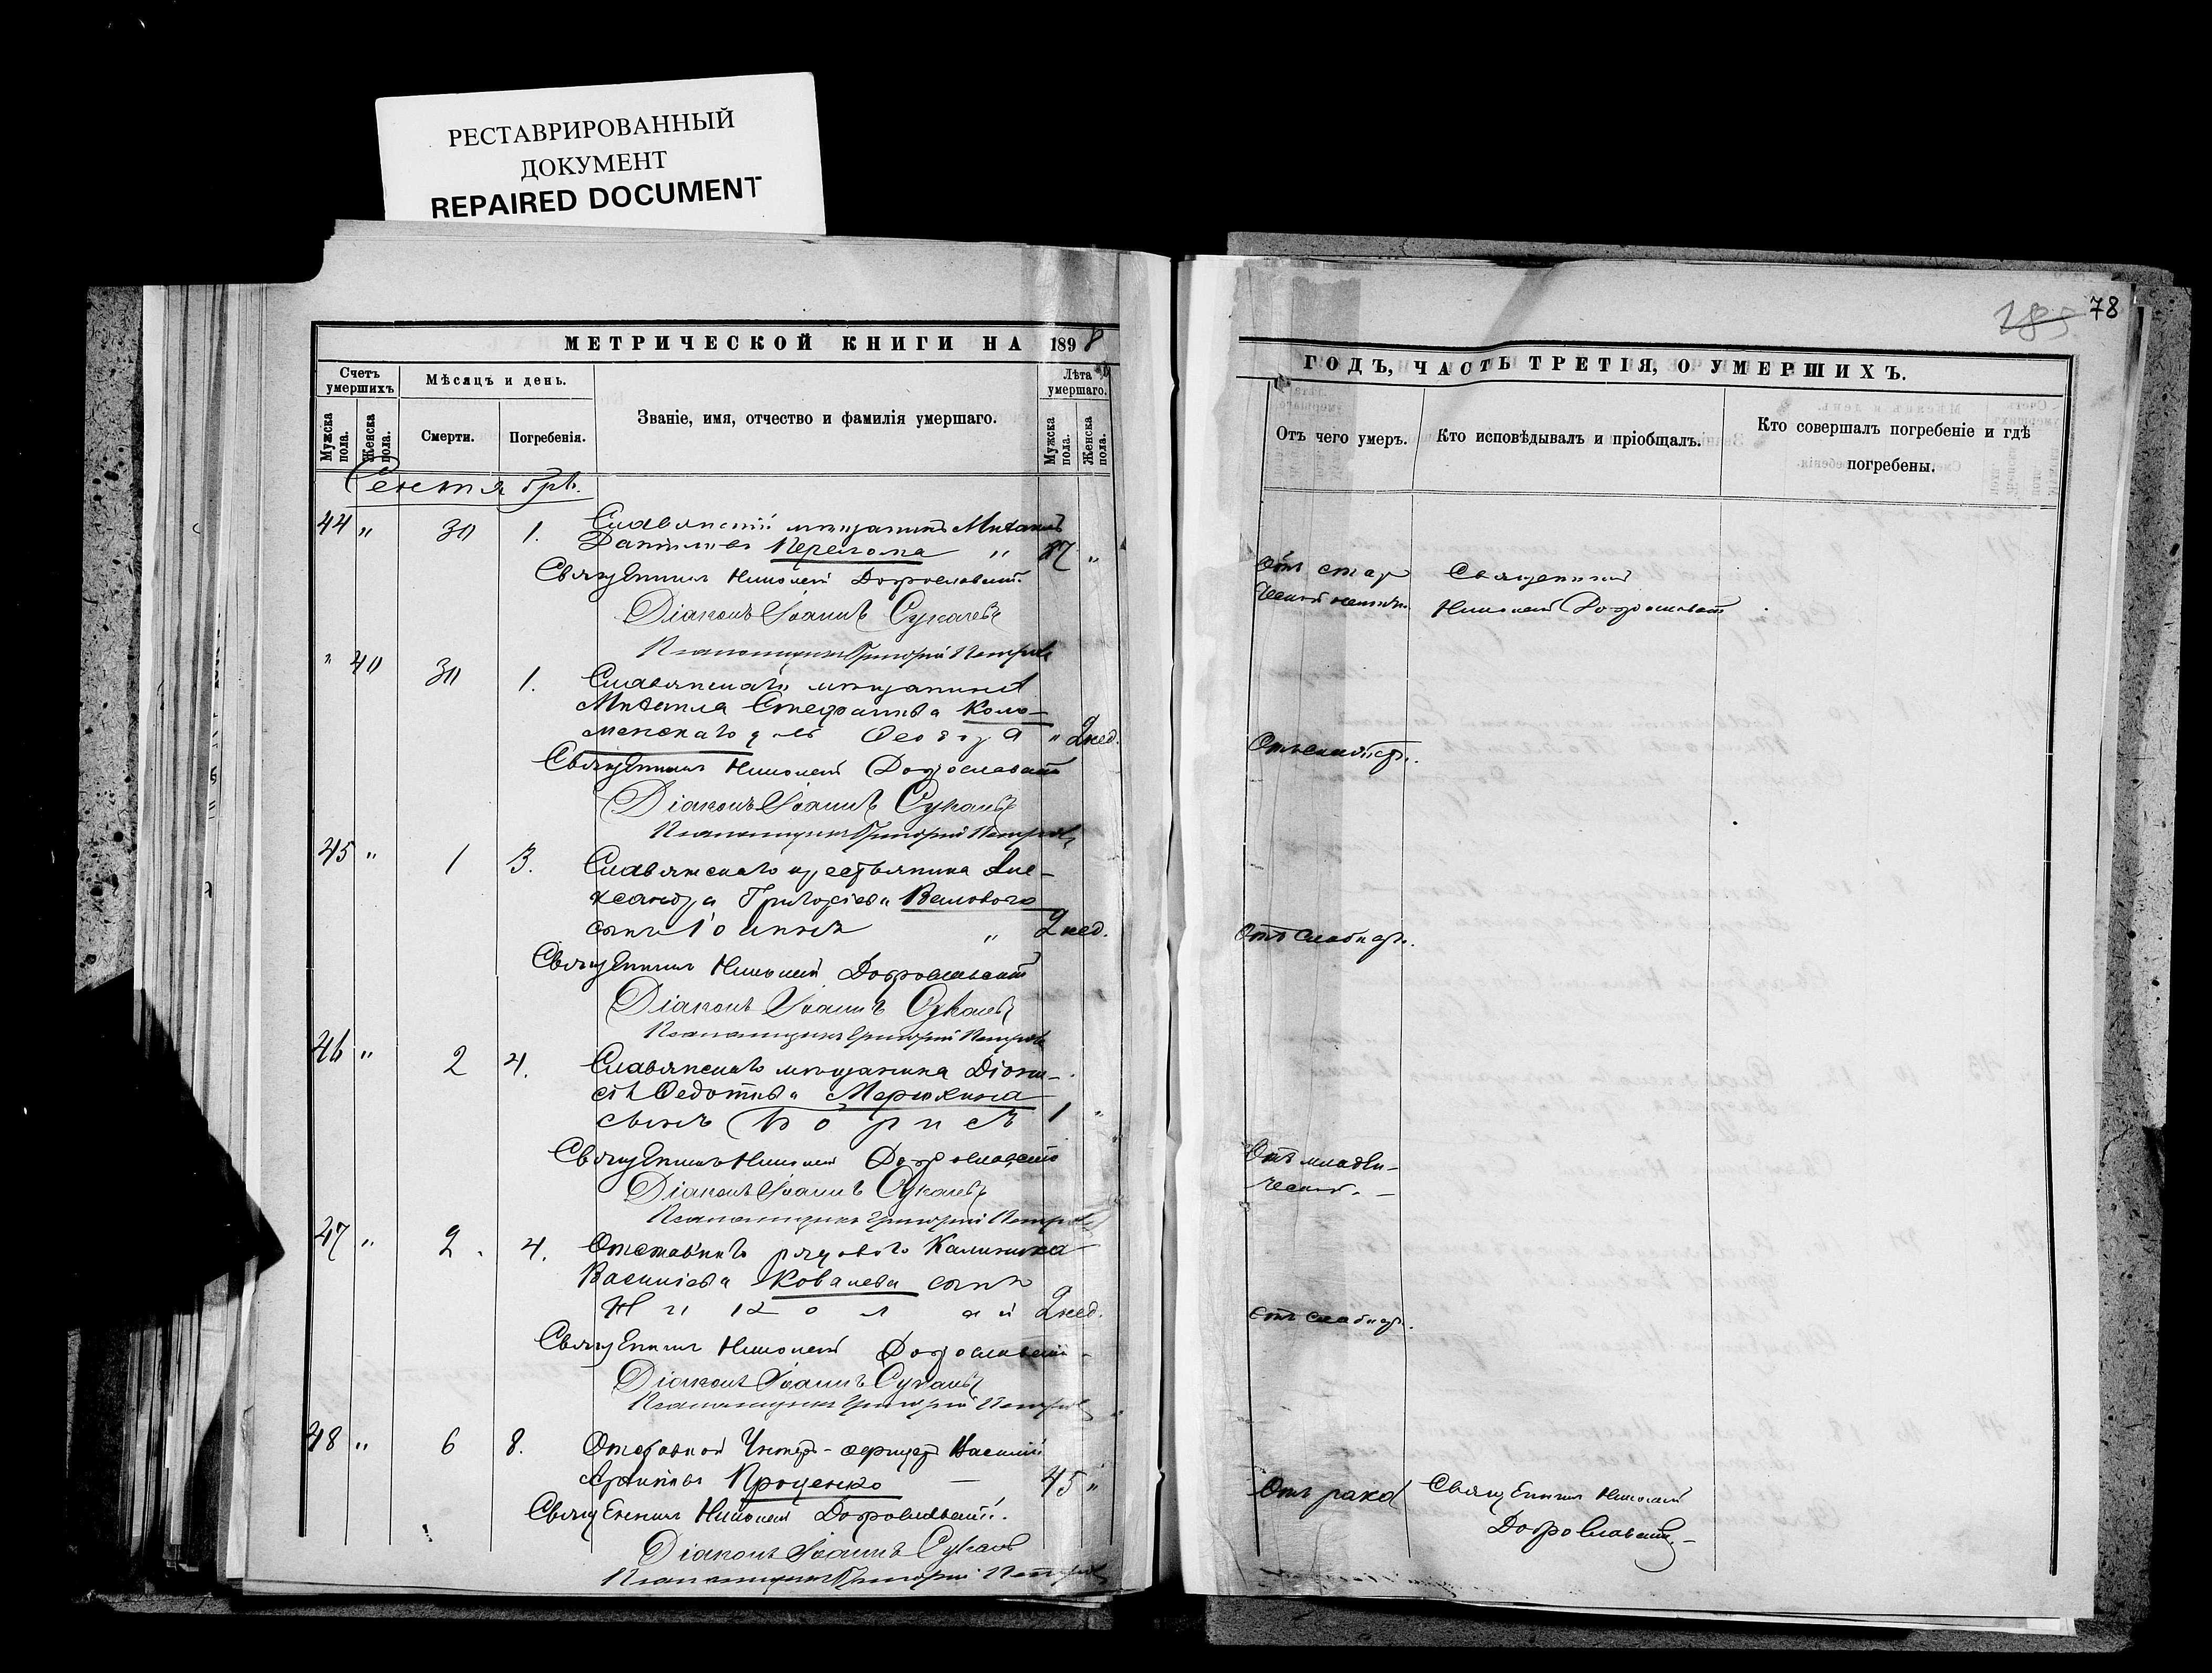 РЕСТАВРИРОВАННЫЙ
ДОКУМЕНТ
REPAIRED DOCUMENT
МЕТРИЧЕСКОЙ КНИГИ НА 1898
Счетъ умершихъ
Мужска пола.
Женска пола.
Мѣсяцъ и день.
Смерти.
Погребенія.
Званіе, имя, отчество и фамилія умершаго.
Лѣта умершаго.
Мужска пола.
Женска пола.
Сентябрь.
44 " 30 1. Славянскій мѣщанинъ Михаилъ
Даниловъ Перелома " 87 "
Священникъ Николай Доброславскій
Діаконъ Іоаннъ Сукачевъ
Псаломщикъ Григорій Петровъ
" 40 30 1. Славянскаго мѣщанина
Михаила Стефанова Коло-
менскаго дочь " 2 нед.
Священникъ Николай Доброславскій
Діаконъ Іоаннъ Сукачевъ
Псаломщикъ Григорій Петровъ
45 " 1 3. Славянскаго крестьянина Але-
ксандра Григорьева Валового
сынъ Іоаннъ " 2 нед.
Священникъ Николай Доброславскій
Діаконъ Іоаннъ Сукачевъ
Псаломщикъ Григорій Петровъ
46 " 2 4. Славянскаго мѣщанина Діони-
сія Федотова Мерюхина
сынъ Борисъ 1 "
Священникъ Николай Доброславскій
Діаконъ Іоаннъ Сукачевъ
Псаломщикъ Григорій Петровъ
47 " 2. 4. Отставнаго рядового Калиника
Васильева Ковалева сынъ
Николай 2 нед.
Священникъ Николай Доброславскій
Діаконъ Іоаннъ Сукачевъ
Псаломщикъ Григорій Петровъ
48 " 6 8. Отставной Унтеръ-офицеръ Василій
Проценко — 45 "
Священникъ Николай Доброславскій.
Діаконъ Іоаннъ Сукачевъ
Псаломщикъ Григорій Петровъ
185 78
ГОДЪ, ЧАСТЬ ТРЕТІЯ, О УМЕРШИХЪ.
Отъ чего умеръ.
Кто исповѣдывалъ и пріобщалъ.
Кто совершалъ погребеніе и гдѣ
погребены.
Отъ стар
Священникъ
Николай Доброславскій
Отъ слабости.
Отъ слабости.
Отъ младен-
ческой. —
Отъ слабости.
Отъ рака
Священникъ Николай
Доброславскій. —